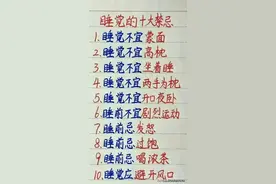 睡觉的十大禁忌
1.睡觉不宜蒙面
2.睡觉不宜高枕
3.睡觉不宜坐着睡
4.睡觉不宜两手为枕
5.睡觉不宜开口夜卧
6.睡前不宜剧烈运动
7.睡前忌发怒
8.睡前忌过饱
9.睡前忌喝浓茶
10.睡觉应避开风口